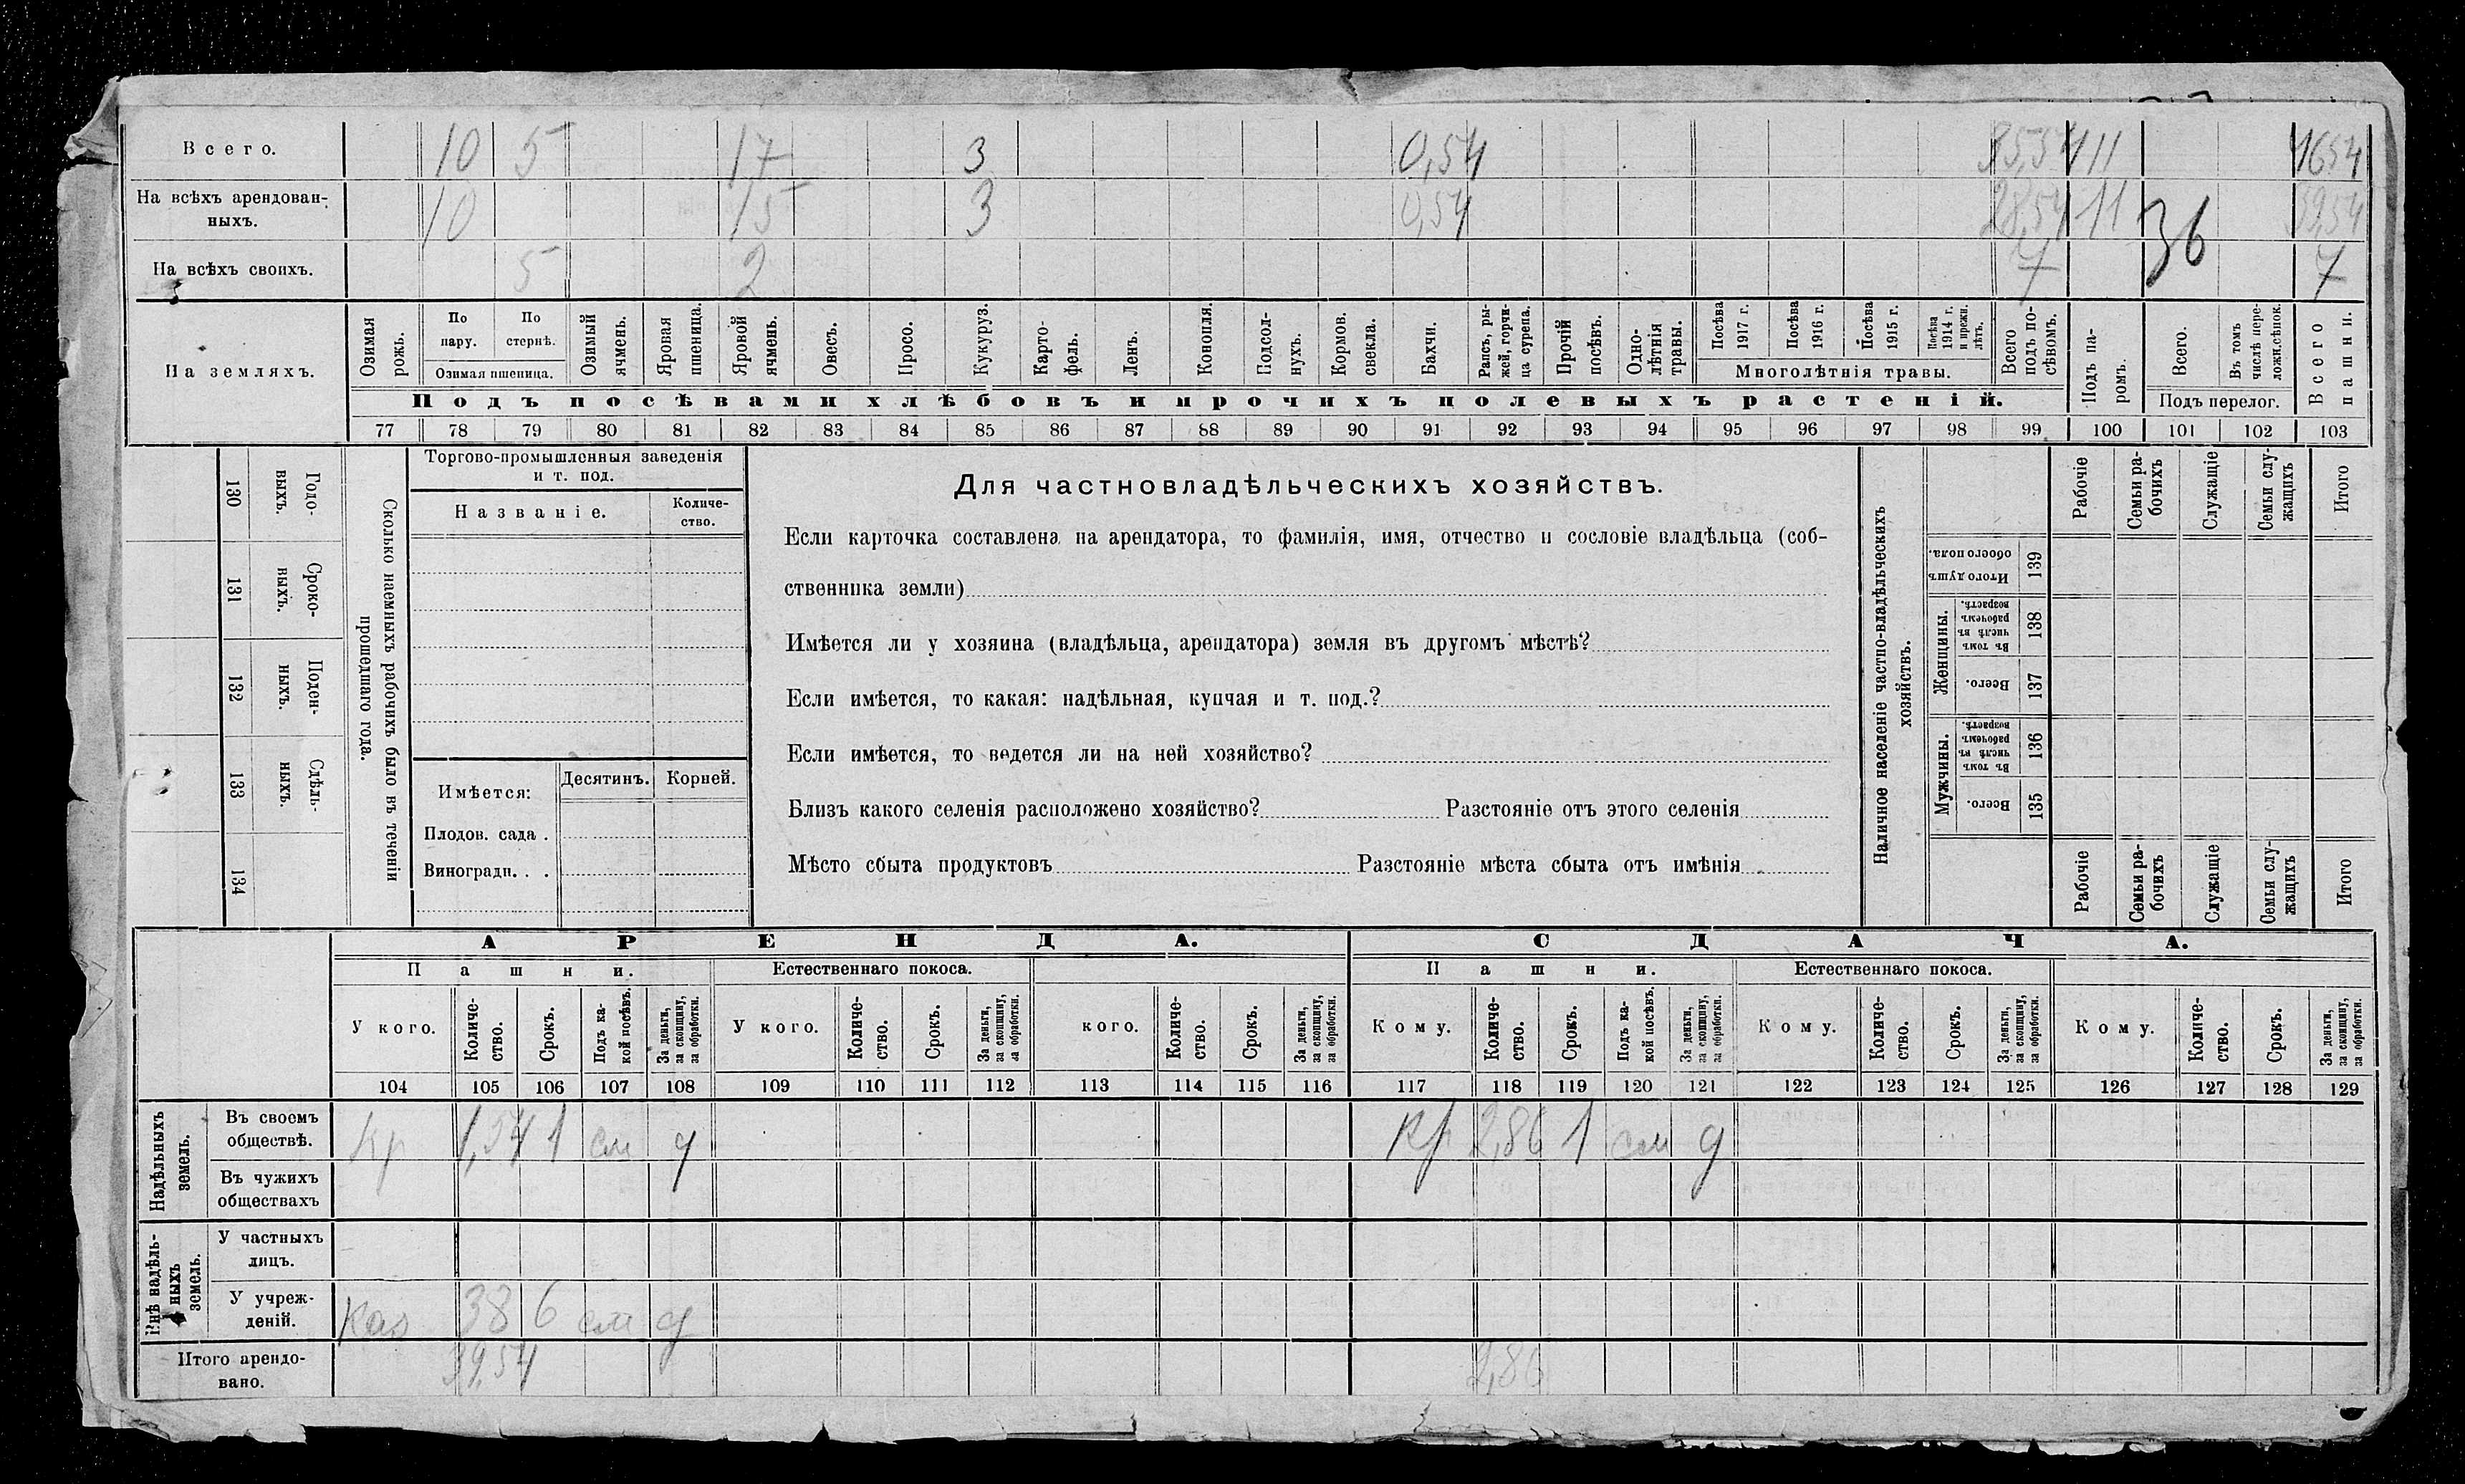 Всего. 10 5 17 3 0,54 35,54 11 46,54
На всѣхъ арендован-
ныхъ. 10 15 3 0,54 28,54 11 39,54
36
На всѣхъ своихъ. 5 2 7 7
На земляхъ.
Озимая рожь.
По пару.
По стернѣ.
Озимая пшеница.
Озимый ячмень.
Яровая пшеница.
Яровой ячмень.
Овесъ.
Просо.
Кукуруз.
Карто-
фель.
Ленъ.
Конопля.
Подсол-
нухъ.
Кормов. свекла.
Бахчи.
Рапсъ, ры-
жей, горчи-
ца сурепа.
Прочій посѣвъ.
Одно-
лѣтнія травы.
Посѣва 1917 г.
Посѣва 1916 г.
Посѣва 1915 г.
Посѣва 1914 г. и прежн. лѣтъ.
Многолѣтнія травы.
Всего подъ по-
сѣвомъ.
Подъ па-
ромъ.
Всего.
Въ томъ числѣ пере-
ложн. сѣнок.
Подъ перелог.
Всего пашни.
Подъ посѣвами хлѣбовъ и прочихъ полевыхъ растеній.
77 78 79 80 81 82 83 84 85 86 87 88 89 90 91 92 93 94 95 96 97 98 99 100 101 102 103
Годо-
выхъ.
130
Сроко-
выхъ.
131
Поден-
ныхъ.
132
Сдѣль-
ныхъ.
133
134
Сколько наемныхъ рабочихъ было въ теченіи
прошедшаго года.
Торгово-промышленныя заведенія
и т. под.
Названіе.
Количе-
ство.
Имѣется:
Десятинъ. Корней.
Плодов. сада .
Виноградн. . .
Для частновладѣльческихъ хозяйствъ.
Если карточка составлена на арендатора, то фамилія, имя, отчество и сословіе владѣльца (соб-
ственника земли)
Имѣется ли у хозяина (владѣльца, арендатора) земля въ другомъ мѣстѣ?
Если имѣется, то какая: надѣльная, купчая и т. под.?
Если имѣется, то ведется ли на ней хозяйство?
Близъ какого селенія расположено хозяйство? Разстояніе отъ этого селенія
Мѣсто сбыта продуктовъ Разстояніе мѣста сбыта отъ имѣнія
Наличное населеніе частно-владѣльческихъ
хозяйствъ.
Рабочіе
Семьи ра-
бочихъ
Служащіе
Семьи слу-
жащихъ
Итого
Итого душъ обоего пола.
139
Женщины.
Въ томъ числѣ въ рабочемъ возрастѣ.
138
Всего.
137
Мужчины.
Въ томъ числѣ въ рабочемъ возрастѣ.
136
Всего.
135
Рабочіе
Семьи ра-
бочихъ
Служащіе
Семьи слу-
жащихъ
Итого
АРЕНДА. СДАЧА.
Пашни. Естественнаго покоса. Пашни. Естественнаго покоса.
У кого.
Количе-
ство.
Срокъ.
Подъ ка-
кой посѣвъ.
За деньги,
за скопщину,
за обработки.
У кого.
Количе-
ство.
Срокъ.
За деньги,
за скопщину,
за обработки.
кого.
Количе-
ство.
Срокъ.
За деньги,
за скопщину,
за обработки.
Кому.
Количе-
ство.
Срокъ.
Подъ ка-
кой посѣвъ.
За деньги,
за скопщину,
за обработки.
Кому.
Количе-
ство.
Срокъ.
За деньги,
за скопщину,
за обработки.
Кому.
Количе-
ство.
Срокъ.
За деньги,
за скопщину,
за обработки.
104 105 106 107 108 109 110 111 112 113 114 115 116 117 118 119 120 121 122 123 124 125 126 127 128 129
Надѣльныхъ
земель.
Въ своемъ
обществѣ. кр 1,54 1 см д кр 2,86 1 см д
Въ чужихъ
обществахъ
Внѣ надѣль-
ныхъ
земель.
У частныхъ
лицъ.
У учреж-
деній. каз 38 6 см д
Итого арендо-
вано. 39,54 2,86